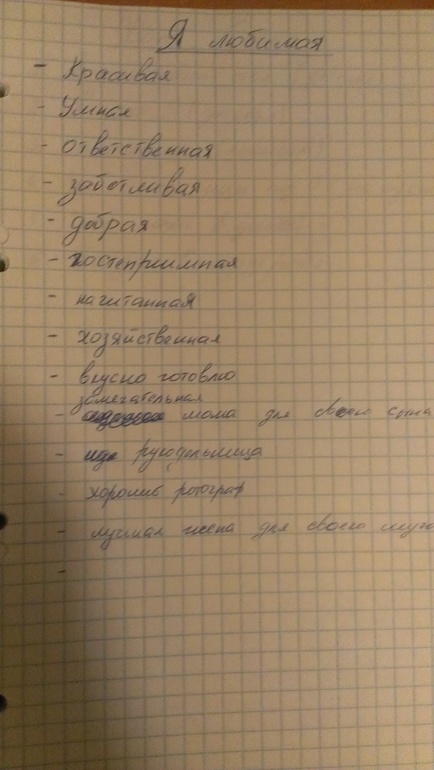 Я любимая
- Красивая
- Умная
- ответственная
- заботливая
- добрая
- гостеприимная
- начитанная
- хозяйственная
- вкусно готовлю
замечательная
- мама для своего сына
- рукодельница
- хороший фотограф
- лучшая жена для своего мужа
-